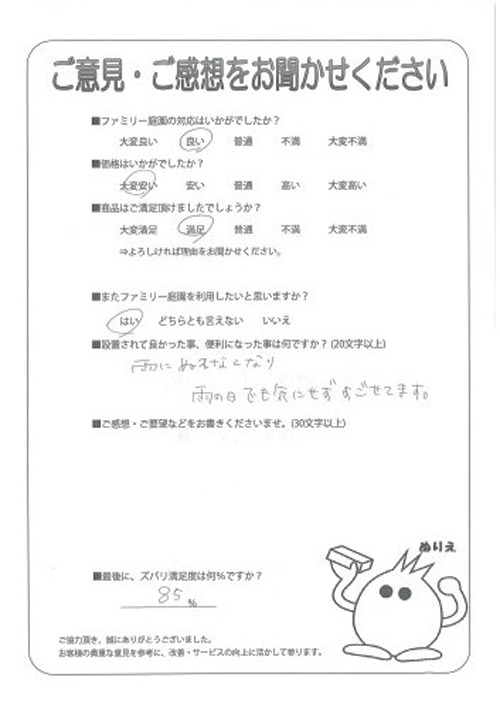 ご意見・ご感想をお聞かせください
■ファミリー庭園の対応はいかがでしたか?
大変良い 良い 普通 不満 大変不満
■価格はいかがでしたか?
大変安い 安い 普通 高い 大変高い
■商品はご満足頂けましたでしょうか?
大変満足 満足 普通 不満 大変不満
⇒よろしければ理由をお聞かせください。
■またファミリー庭園を利用したいと思いますか?
はい どちらとも言えない いいえ
■設置されて良かった事、便利になった事は何ですか?(20文字以上)
雨にぬれなくなり
雨の日でも気にせずすごせてます。
■ご感想・ご要望などをお書きくださいませ。(30文字以上)
ぬりえ
■最後に、ズバリ満足度は何%ですか?
85%
ご協力頂き、誠にありがとうございました。
お客様の貴重な意見を参考に、改善・サービスの向上に活かして参ります。